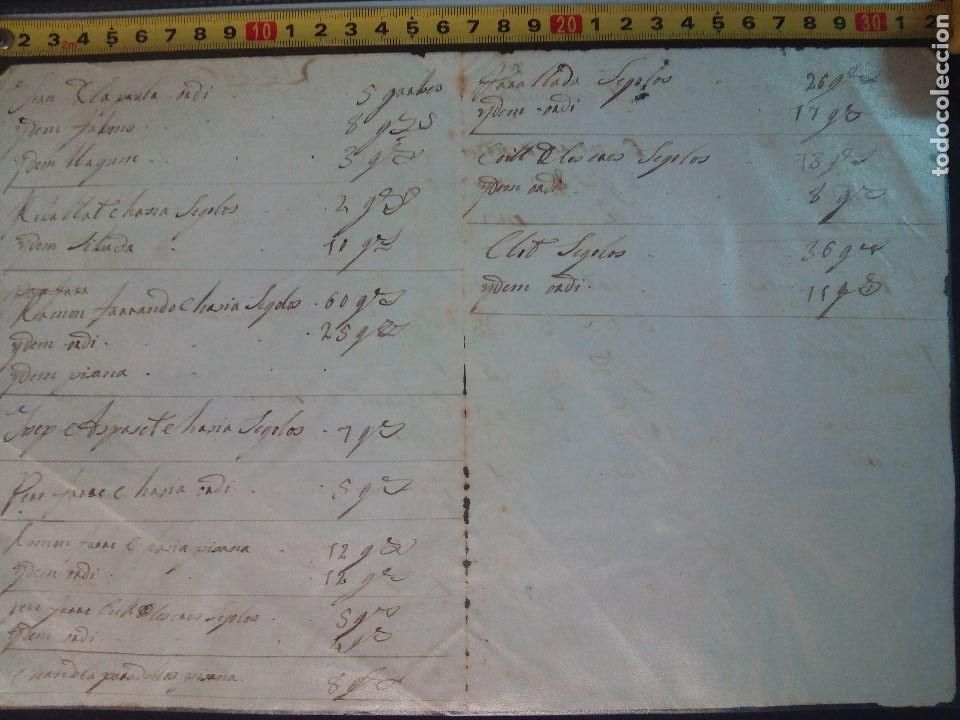 2 3 4 5 6 7 8 9 10 1 2 3 4 5 6 7 8 9 20 1 2 3 4 5 6 7 8 9 30 1 2
2m
Juan Dla paula ordi . 5 garbes
ydem fabons . 8 gs
ydem llagum . 3 gs
Riballat e hasia Segolos . 2 gs
ydem Sibada . 10 gs
Ramon farrando e hasia Segolos . 60 gs
ydem ordi . 25 gs
ydem pisana .
Josep e Aspaset e hasia Segolos . 7 gs
Pere farre e hasia ordi . 5 gs
Ramon farre e hasia pisana . 12 gs
ydem ordi . 12 gs
Pere farre Coll D los eres Segolos . 5 gs
ydem ordi . gs
pisana . 8 gs
Farallada Segolos 26 gs
ydem ordi 17 gs
Coll D los eres Segolos 18 gs
ydem ordi 8 gs
Clot Segolos . 36 gs
ydem ordi . 15 gs
todocoleccion.net